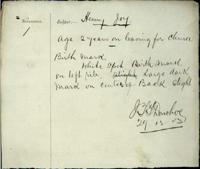 Reference
Subject.— Henry Joy
1
Age 2 years on leaving for China
Birth Mark
White Spot Birth Mark
on left side Large dark
Mark on centre Back Slight
J Donohoe
29.12.03